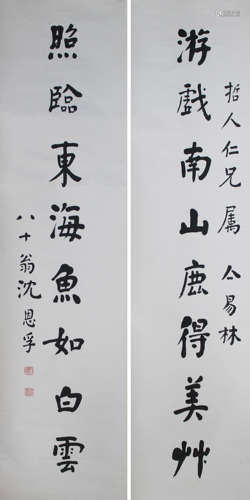 游戲南山鹿得美艸
哲人仁兄屬 仌易林
照臨東海魚如白雲
八十翁沈恩孚